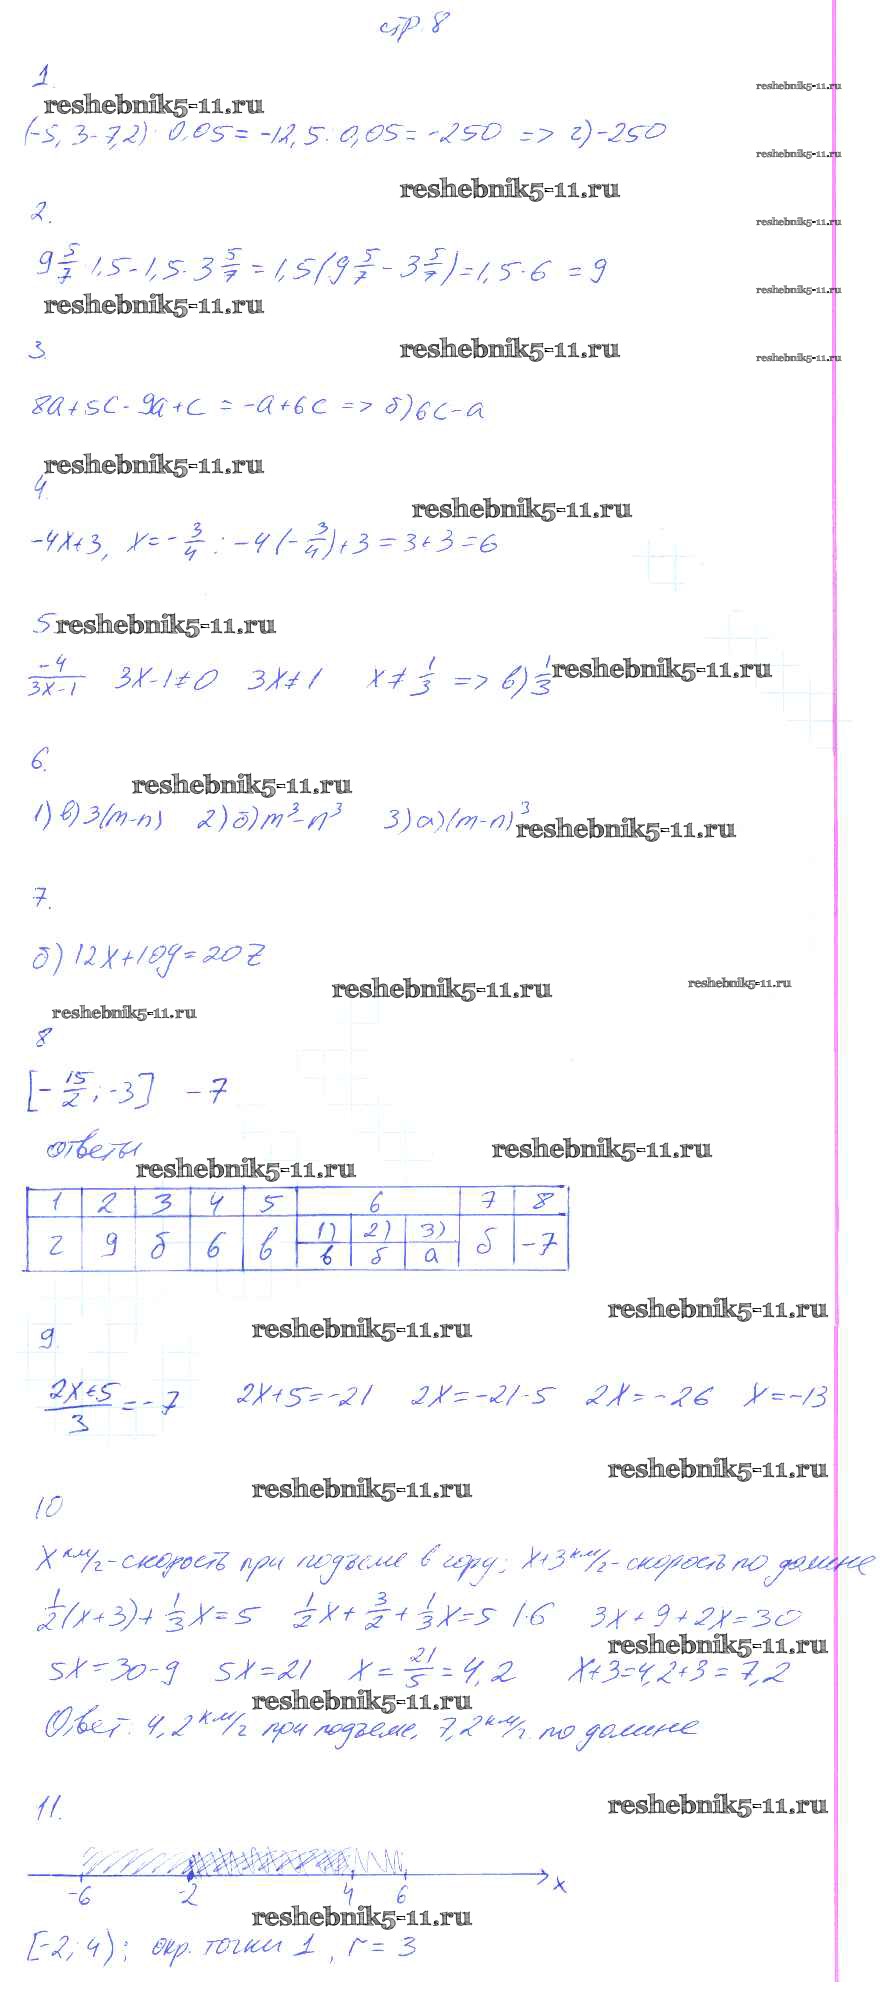 стр. 8
1.
reshebnik5-11.ru
reshebnik5-11.ru
(-5,3-7,2) : 0,05 = -12,5 : 0,05 = -250 => г) -250
reshebnik5-11.ru
reshebnik5-11.ru
2.
reshebnik5-11.ru
9 5/7 · 1,5 - 1,5 · 3 5/7 = 1,5 (9 5/7 - 3 5/7) = 1,5 · 6 = 9
reshebnik5-11.ru
reshebnik5-11.ru
3.
reshebnik5-11.ru
reshebnik5-11.ru
8a + 5c - 9a + c = -a + 6c => б) 6c - a
reshebnik5-11.ru
4.
reshebnik5-11.ru
-4x+3, x = -3/4 : -4 (-3/4) + 3 = 3 + 3 = 6
5
reshebnik5-11.ru
-4/(3x-1) 3x-1≠0 3x≠1 x≠1/3 => в) 1/3
reshebnik5-11.ru
6.
reshebnik5-11.ru
1) в) 3(m-n) 2) б) m³-n³ 3) а) (m-n)³
reshebnik5-11.ru
7.
б) 12x+10y=20z
reshebnik5-11.ru
reshebnik5-11.ru
reshebnik5-11.ru
8
[-15/2; -3] -7
ответы
reshebnik5-11.ru
reshebnik5-11.ru
1 2 3 4 5 6 7 8
1) 2) 3)
г 9 б 6 в в б а б -7
reshebnik5-11.ru
reshebnik5-11.ru
9.
(2x+5)/3 = -7 2x+5=-21 2x=-21-5 2x=-26 x=-13
reshebnik5-11.ru
reshebnik5-11.ru
10
x км/г - скорость при подъеме в гору; x+3 км/г - скорость по долине
1/2(x+3) + 1/3x = 5 1/2x + 3/2 + 1/3x = 5 |·6 3x+9+2x=30
reshebnik5-11.ru
5x=30-9 5x=21 x=21/5=4,2 x+3=4,2+3=7,2
reshebnik5-11.ru
Ответ: 4,2 км/г при подъеме, 7,2 км/г. по долине
11.
reshebnik5-11.ru
-6 -2 4 6 x
reshebnik5-11.ru
[-2; 4); окр. точки 1, r = 3